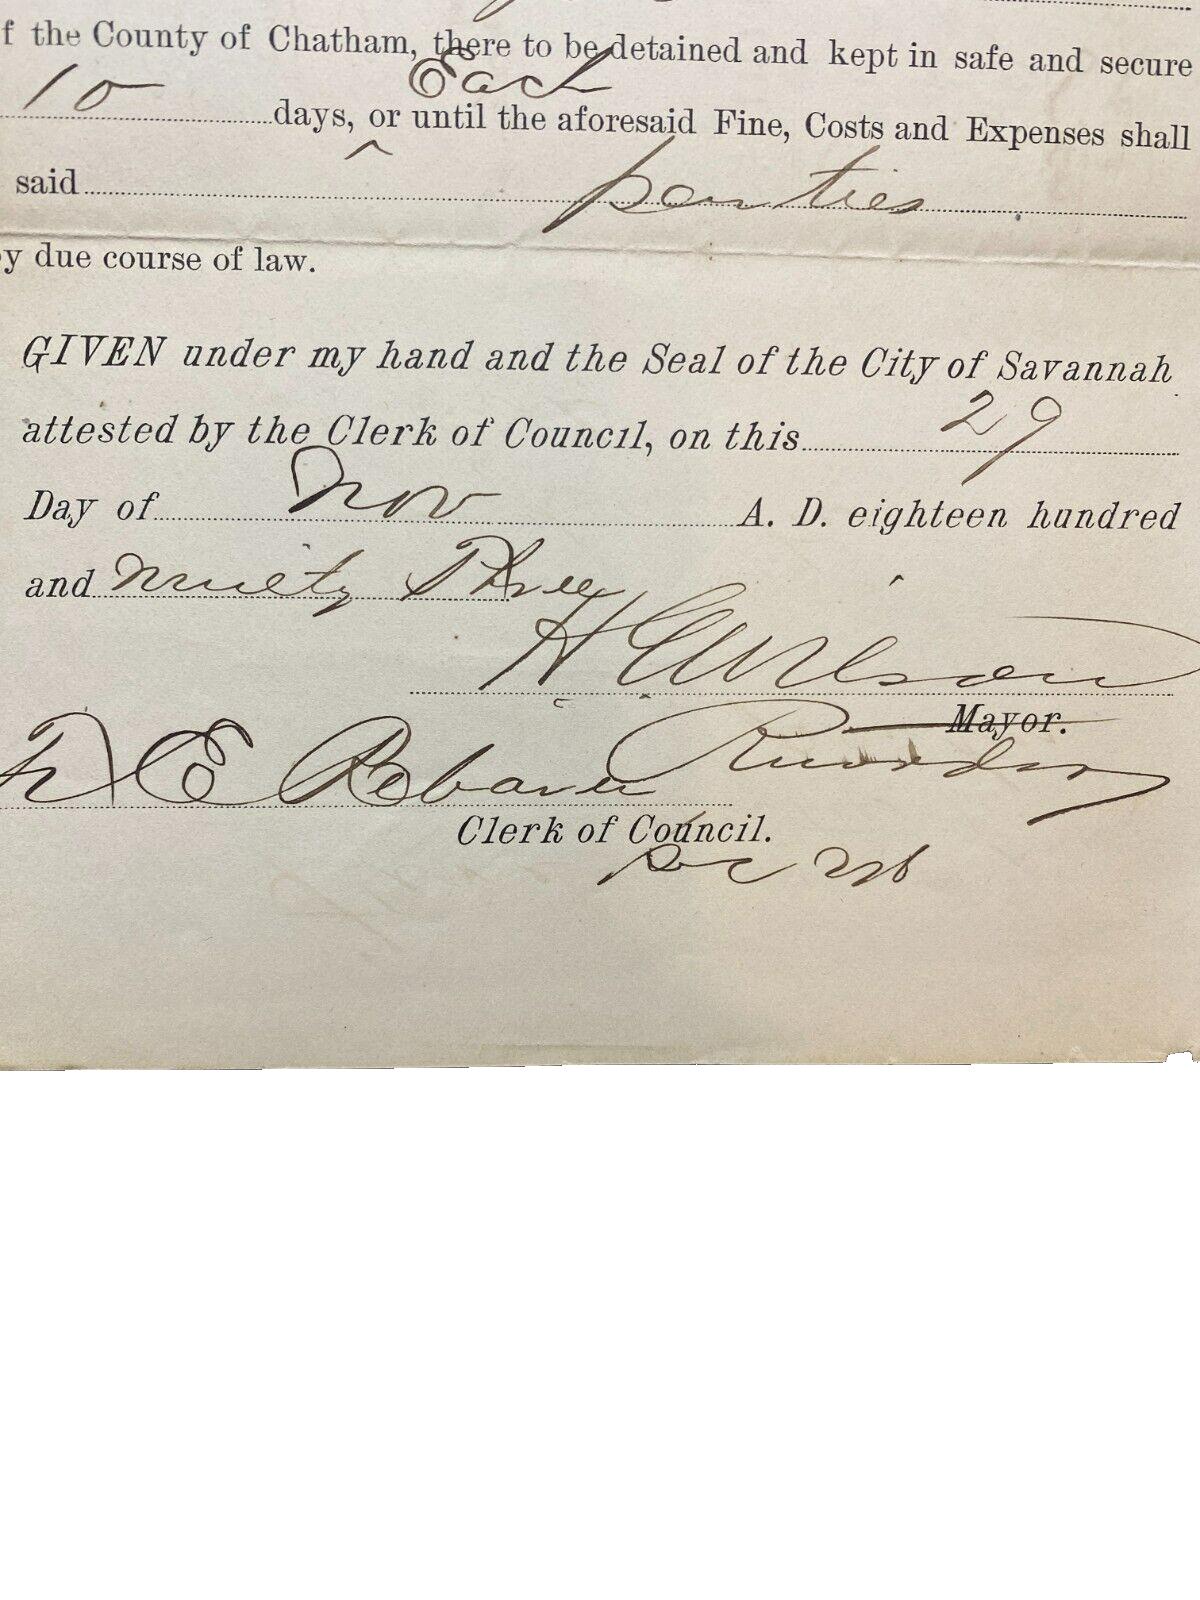 f the County of Chatham, there to be detained and kept in safe and secure
Each
10 days, ^ or until the aforesaid Fine, Costs and Expenses shall
said parties
y due course of law.
GIVEN under my hand and the Seal of the City of Savannah
attested by the Clerk of Council, on this 29
Day of Nov A. D. eighteen hundred
and Ninety Three
Wilson
Mayor.
E Rebarer
Clerk of Council.